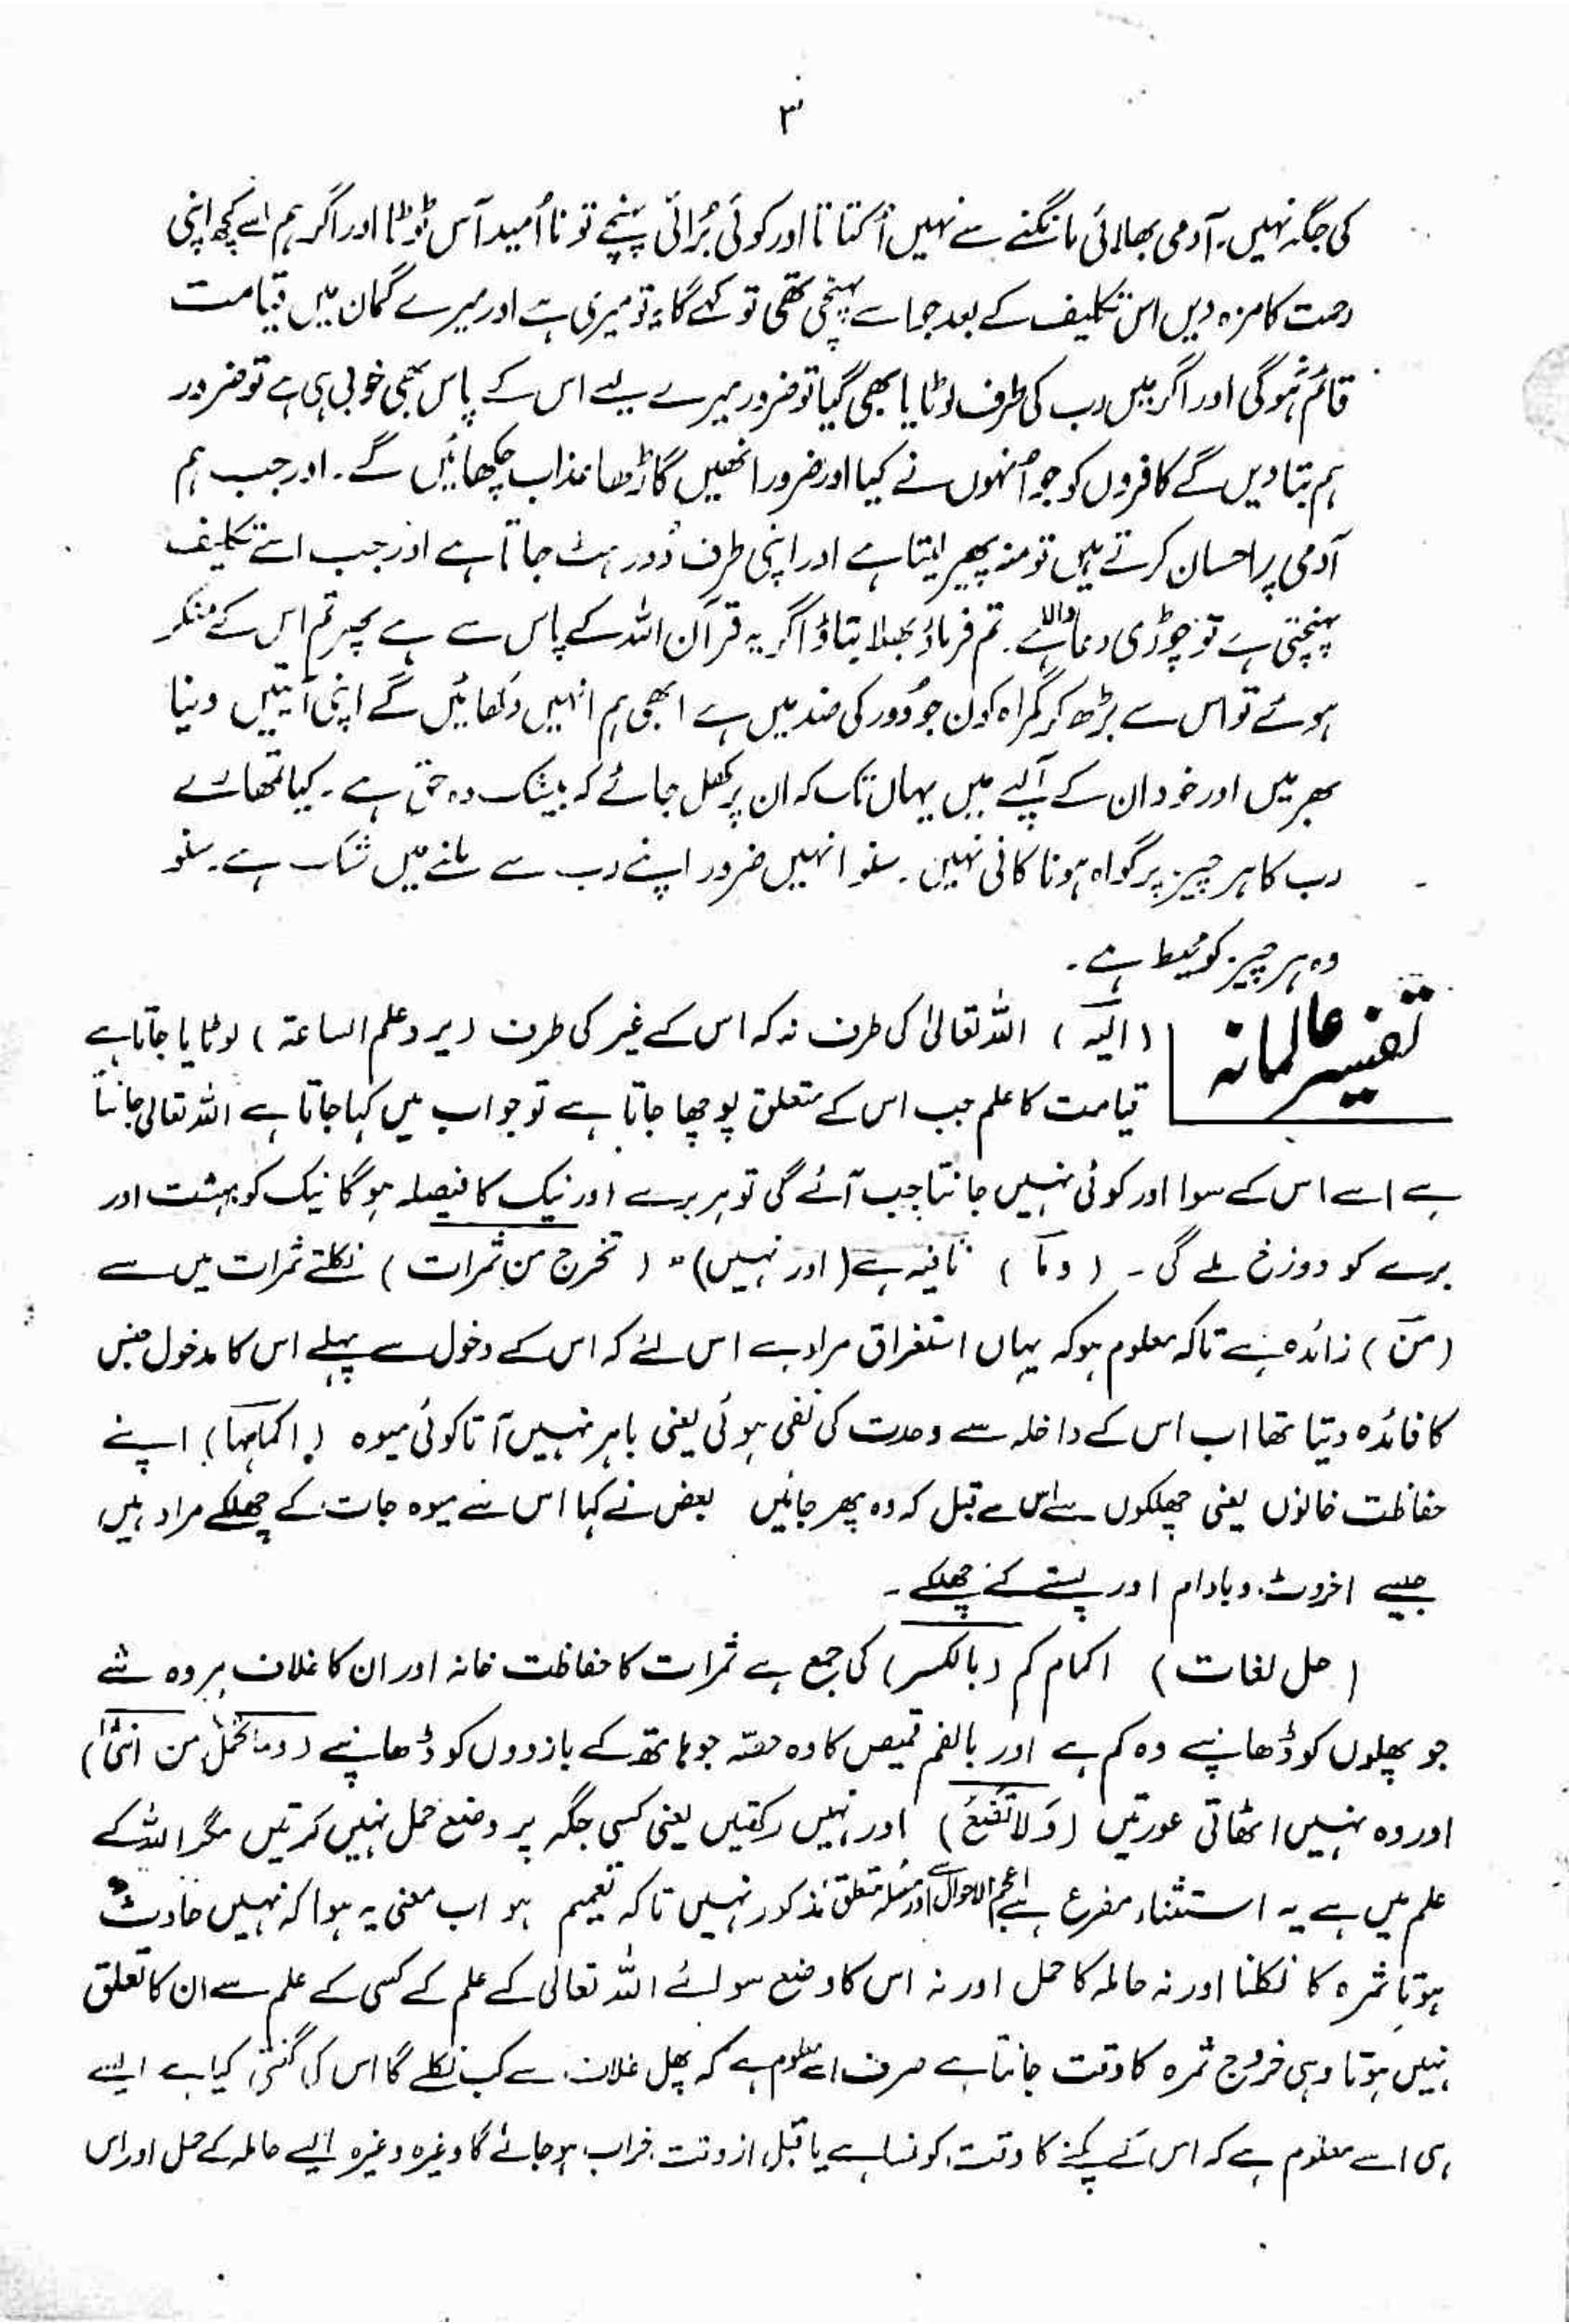 ۳
کی جگہ نہیں۔ آدمی بھلائی مانگنے سے نہیں اُکتاتا اور کوئی بُرائی پہنچے تو نا اُمید آس ٹوٹا اور اگر ہم اسے کچھ اپنی
رحمت کا مزہ دیں اس تکلیف کے بعد جو اسے پہنچی تھی تو کہے گا یہ تو میری ہے اور میرے گمان میں قیامت
قائم نہ ہوگی اور اگر میں رب کی طرف لوٹایا بھی گیا تو ضرور میرے لیے اس کے پاس بھی خوبی ہی ہے تو ضرور
ہم بتا دیں گے کافروں کو جو اُنہوں نے کیا اور ضرور انھیں گاڑھا عذاب چکھائیں گے۔ اور جب ہم
آدمی پر احسان کرتے ہیں تو منہ پھیر لیتا ہے اور اپنی طرف دُور ہٹ جاتا ہے اور جب اسے تکلیف
پہنچتی ہے تو چوڑی دعا والا ہے۔ تم فرماؤ بھلا بتاؤ اگر یہ قرآن اللہ کے پاس سے ہے پھر تم اس کے منکر
ہوئے تو اس سے بڑھ کر گمراہ کون جو دُور کی ضد میں ہے ابھی ہم انہیں دکھائیں گے اپنی آیتیں دنیا
بھر میں اور خود ان کے آپے میں یہاں تک کہ ان پر کھل جائے کہ بیشک وہ حق ہے۔ کیا تمھارے
رب کا ہر چیز پر گواہ ہونا کافی نہیں۔ سنو انہیں ضرور اپنے رب سے ملنے میں شک ہے۔ سنو
وہ ہر چیز کو محیط ہے۔
تفسیر عالمانہ (الیہ) اللہ تعالیٰ کی طرف نہ کہ اس کے غیر کی طرف (یرد علم الساعۃ) لوٹایا جاتا ہے
قیامت کا علم جب اس کے متعلق پوچھا جاتا ہے تو جواب میں کہا جاتا ہے اللہ تعالیٰ جانتا
ہے اسے اس کے سوا اور کوئی نہیں جانتا جب آئے گی تو ہر برے اور نیک کا فیصلہ ہوگا نیک کو بہشت اور
برے کو دوزخ ملے گی۔ (وما) نافیہ ہے (اور نہیں) (تخرج من ثمرات) نکلتے ثمرات میں سے
(من) زائدہ ہے تاکہ معلوم ہو کہ یہاں استغراق مراد ہے اس لئے کہ اس کے دخول سے پہلے اس کا مدخول جنس
کا فائدہ دیتا تھا اب اس کے داخلہ سے وحدت کی نفی ہوئی یعنی باہر نہیں آتا کوئی میوہ (اکمامہا) اپنے
حفاظت خانوں یعنی چھلکوں سے اس سے قبل کہ وہ پھر جائیں بعض نے کہا اس سے میوہ جات کے چھلکے مراد ہیں
جیسے اخروٹ و بادام اور پستے کے چھلکے۔
(حل لغات) اکمام کم (بالکسر) کی جمع ہے ثمرات کا حفاظت خانہ اور ان کا غلاف ہر وہ شے
جو پھلوں کو ڈھانپے وہ کم ہے اور بالضم قمیص کا وہ حصّہ جو ہاتھ کے بازووں کو ڈھانپے (وما تحمل من انثیٰ)
اور وہ نہیں اٹھاتی عورتیں (وَلَا تَضَعُ) اور نہیں رکھتیں یعنی کسی جگہ پر وضع حمل نہیں کرتیں مگر اللہ کے
علم میں ہے یہ استثناء مفرغ ہے اعم الاحوال سے اور مذکور نہیں تاکہ تعمیم ہو اب معنی یہ ہوا کہ نہیں حادث
ہوتا ثمرہ کا نکلنا اور نہ حاملہ کا حمل اور نہ اس کا وضع سوائے اللہ تعالیٰ کے علم کے کسی کے علم سے ان کا تعلق
نہیں ہوتا وہی خروج ثمرہ کا وقت جانتا ہے صرف اسے معلوم ہے کہ پھل غلاف سے کب نکلے گا اس کی گنتی کیا ہے ایسے
ہی اسے معلوم ہے کہ اس کے پکنے کا وقت کونسا ہے یا قبل از وقت خراب ہو جائے گا وغیرہ وغیرہ ایسے حاملہ کے حمل اور اس